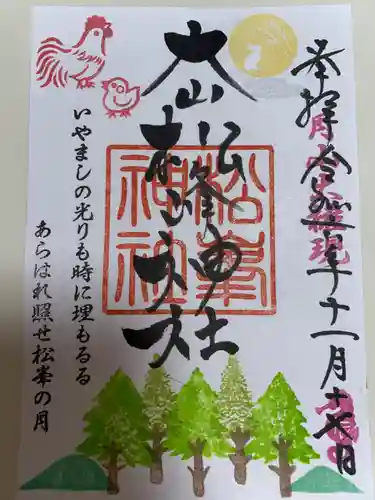 奉拝 令和 年十一月十七日
大山
松峰神社
松峯
神社
いやましの光りも時に埋もるる
あらはれ照せ松峯の月